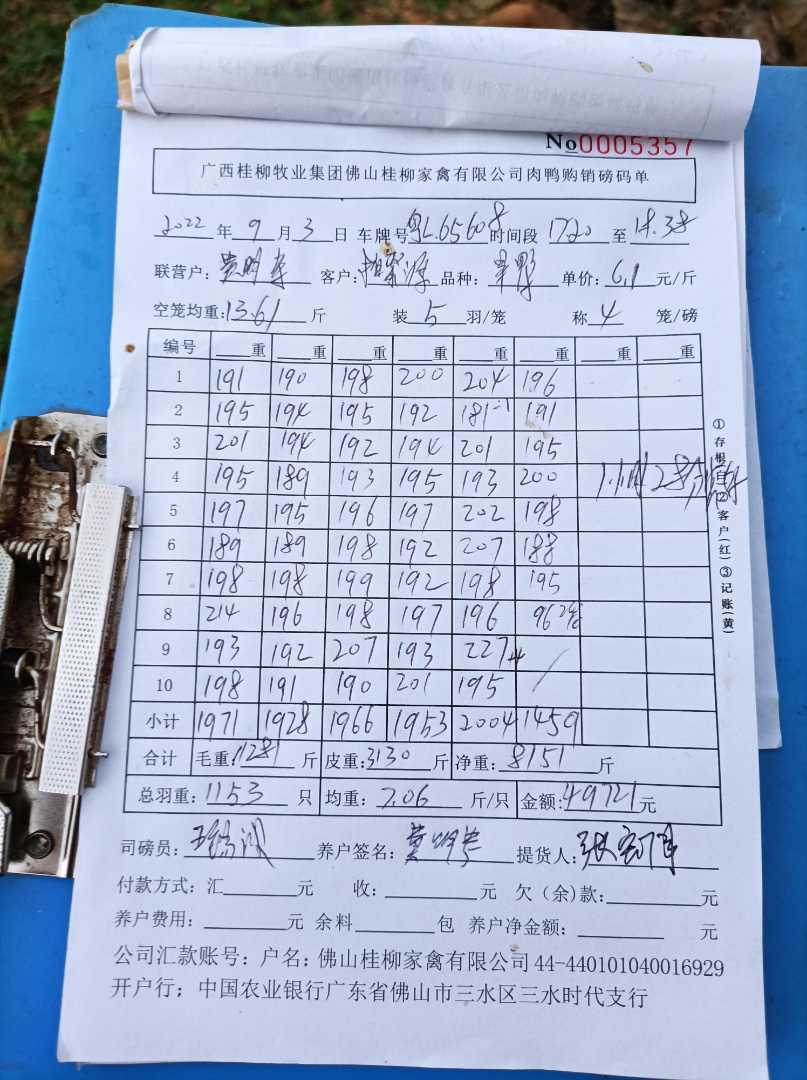 No0005357
广西桂柳牧业集团佛山桂柳家禽有限公司肉鸭购销磅码单
2022 年 9 月 3 日 车牌号 粤L65608 时间段 1720 至 18.38
联营户: 客户: 品种: 单价: 6.1 元/斤
空笼均重: 13.61 斤 装 5 羽/笼 称 4 笼/磅
编号 重 重 重 重 重 重 重 重
1 191 190 198 200 204 196
2 195 194 195 192 181-1 191
3 201 194 192 194 201 195
4 195 189 193 195 193 200 1小时28分钟
5 197 195 196 197 202 198
6 189 189 198 192 207 188
7 198 198 199 192 198 195
8 214 196 198 197 196 96 2笼
9 193 192 207 193 227
10 198 191 190 201 195
小计 1971 1928 1966 1953 2004 1459
合计 毛重: 11281 斤 皮重: 3130 斤 净重: 8151 斤
总羽重: 1153 只 均重: 7.06 斤/只 金额: 49721 元
司磅员: 养户签名: 提货人:
付款方式: 汇 元 收: 元 欠(余)款: 元
养户费用: 元 余料 包 养户净金额: 元
公司汇款账号: 户名: 佛山桂柳家禽有限公司 44-440101040016929
开户行; 中国农业银行广东省佛山市三水区三水时代支行
①存根(白)②客户(红)③记账(黄)